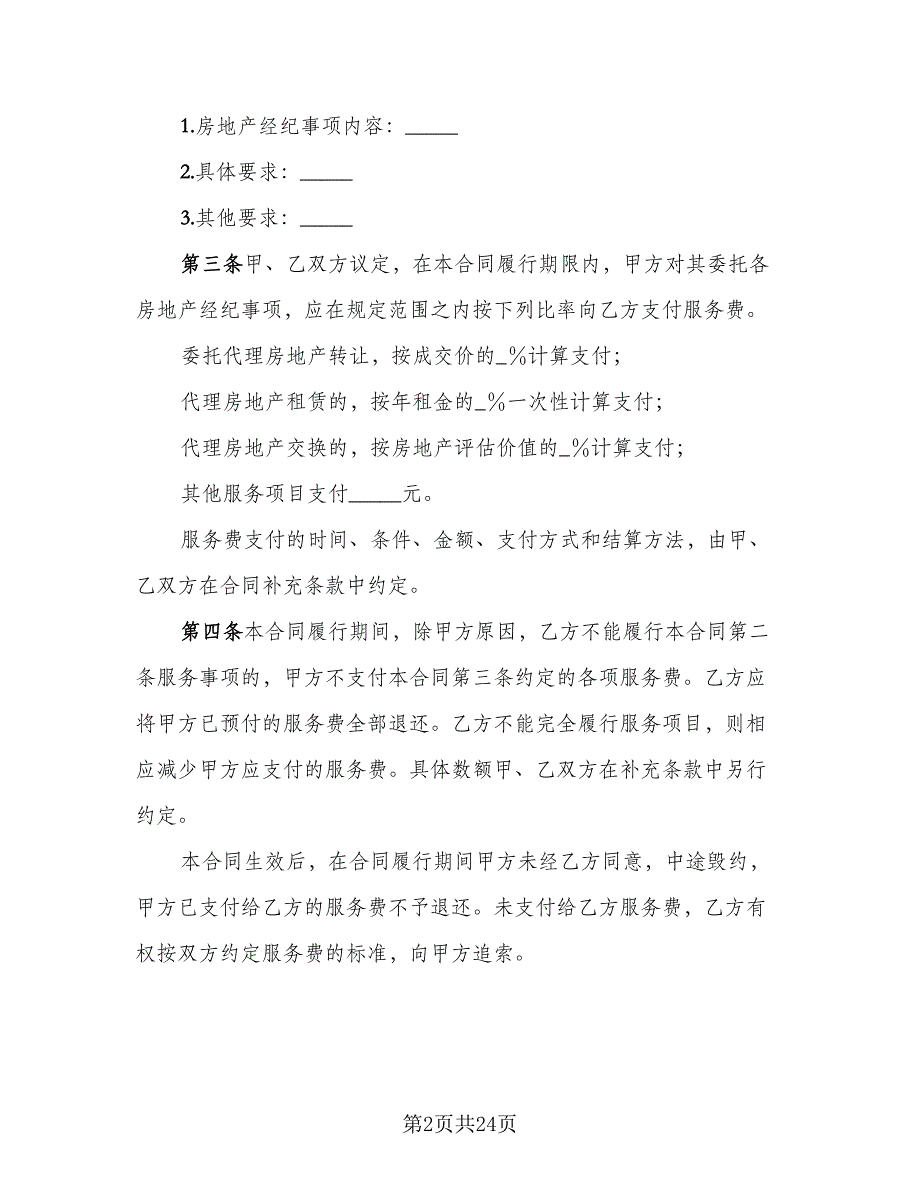 1.房地产经纪事项内容：_____
2.具体要求：_____
3.其他要求：_____
第三条甲、乙双方议定，在本合同履行期限内，甲方对其委托各
房地产经纪事项，应在规定范围之内按下列比率向乙方支付服务费。
委托代理房地产转让，按成交价的_%计算支付；
代理房地产租赁的，按年租金的_%一次性计算支付；
代理房地产交换的，按房地产评估价值的_%计算支付；
其他服务项目支付_____元。
服务费支付的时间、条件、金额、支付方式和结算方法，由甲、
乙双方在合同补充条款中约定。
第四条本合同履行期间，除甲方原因，乙方不能履行本合同第二
条服务事项的，甲方不支付本合同第三条约定的各项服务费。乙方应
将甲方已预付的服务费全部退还。乙方不能完全履行服务项目，则相
应减少甲方应支付的服务费。具体数额甲、乙双方在补充条款中另行
约定。
本合同生效后，在合同履行期间甲方未经乙方同意，中途毁约，
甲方已支付给乙方的服务费不予退还。未支付给乙方服务费，乙方有
权按双方约定服务费的标准，向甲方追索。
第2页共24页